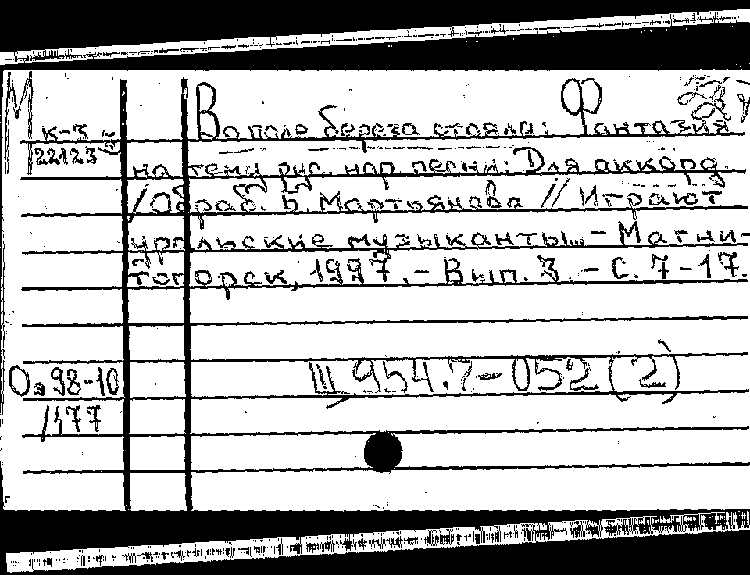 М
к-3
22123
Во поле береза стояла: Фантазия
на тему рус. нар песни: Для аккорд.
/ Обраб. Б. Мартьянова // Играют
уральские музыканты... - Магни-
тогорск, 1997. - Вып. 3. - С. 7-17.
Оэ 98-10
/477
Щ 954.7-052 (2)